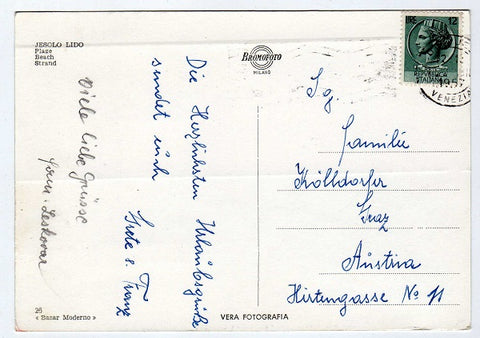 JESOLO LIDO
Plage
Beach
Strand
BROMOFOTO
MILANO
LIRE 12
VENEZIA
Die Herzlichsten Urlaubsgrüße
sendet euch
Grete u. Franz
Viele liebe Grüsse
Fam. Leskovar
Sg.
Familie
Kölldorfer
Graz
Austria
Hirtengasse No 11
26
« Bazar Moderno »
VERA FOTOGRAFIA